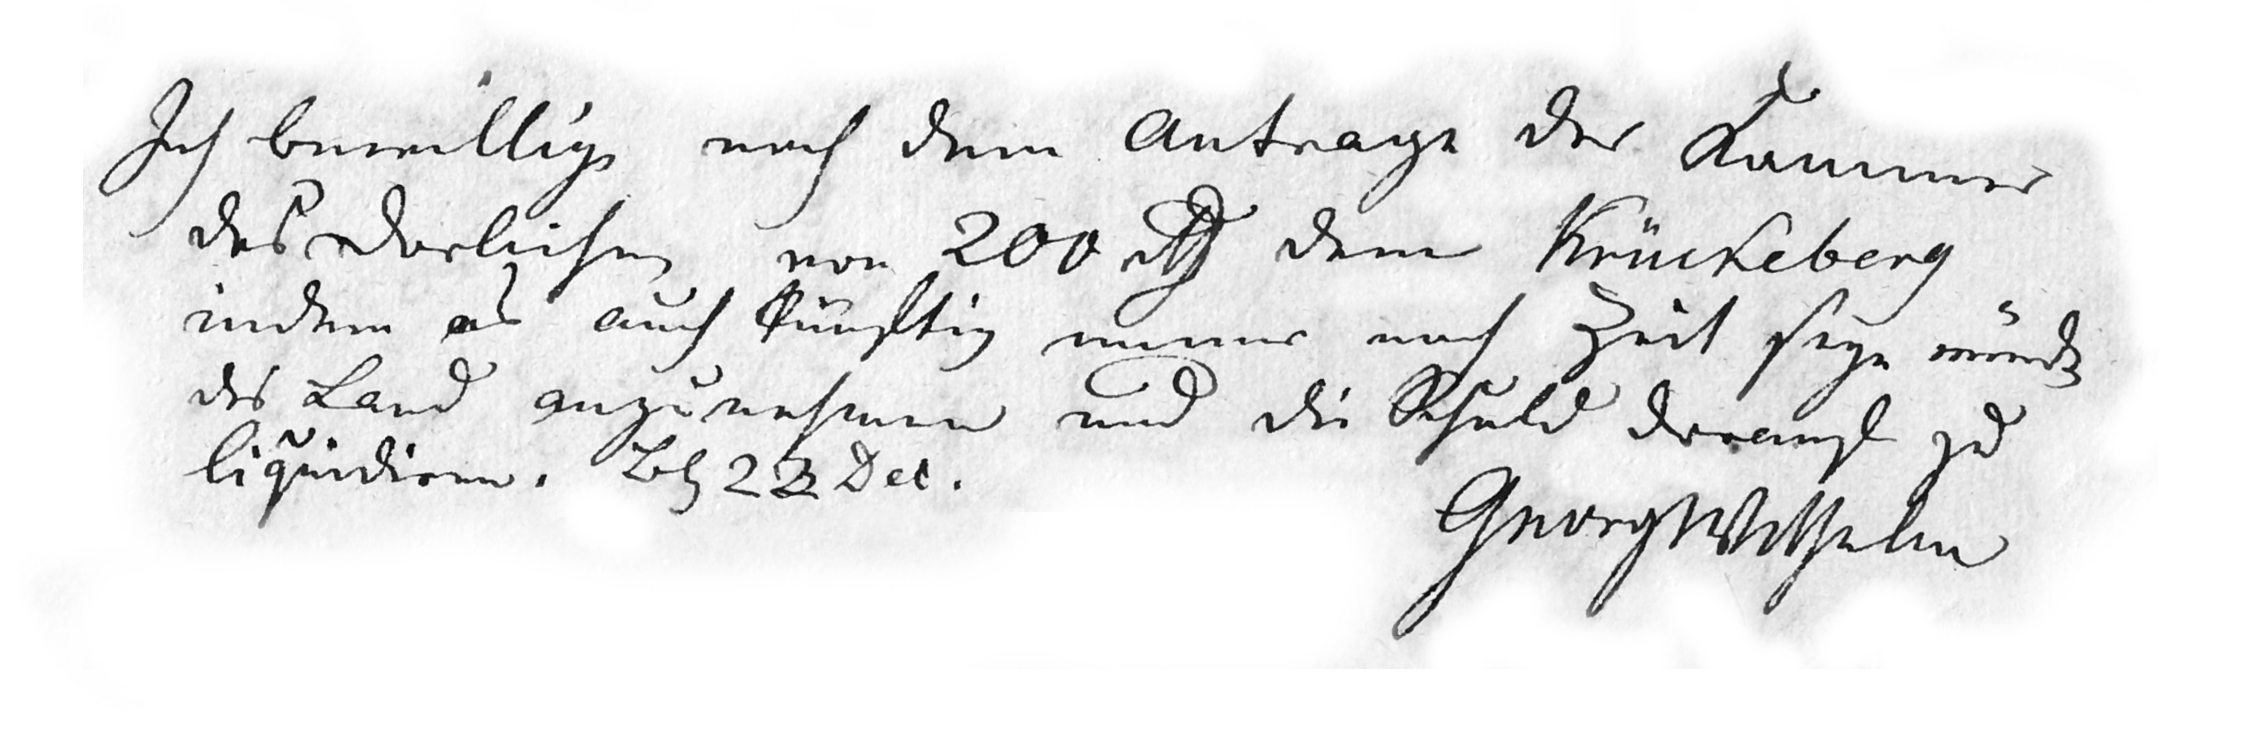 Ich bewillige nach dem Antrage der Kammer
das Darleihen von 200 rthlr dem Krückeberg
indem es auch künftig immer noch Zeit seyn würde
das Land anzunehmen und die Schuld darauf zu
liquidiren. Bbg 23 Dec.
Georg Wilhelm